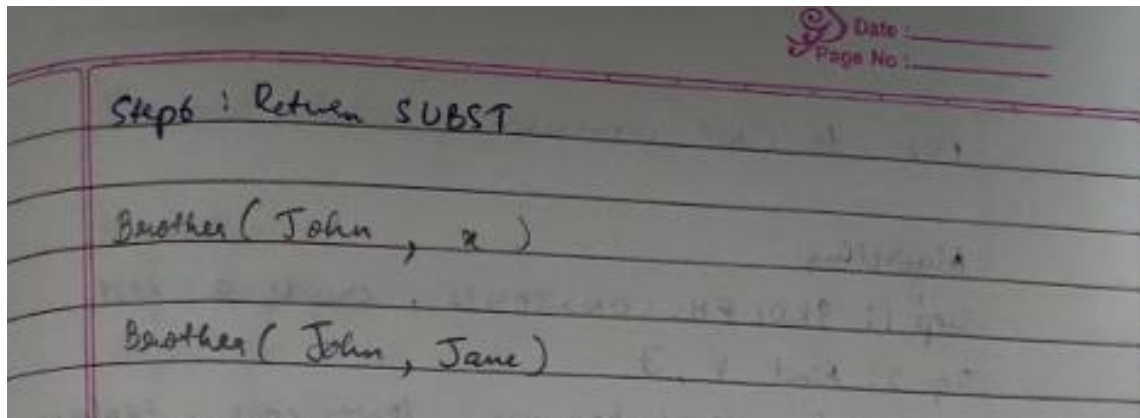 Date :
Page No :
Step6 : Return SUBST
Brother ( John , x )
Brother ( John , Jane )